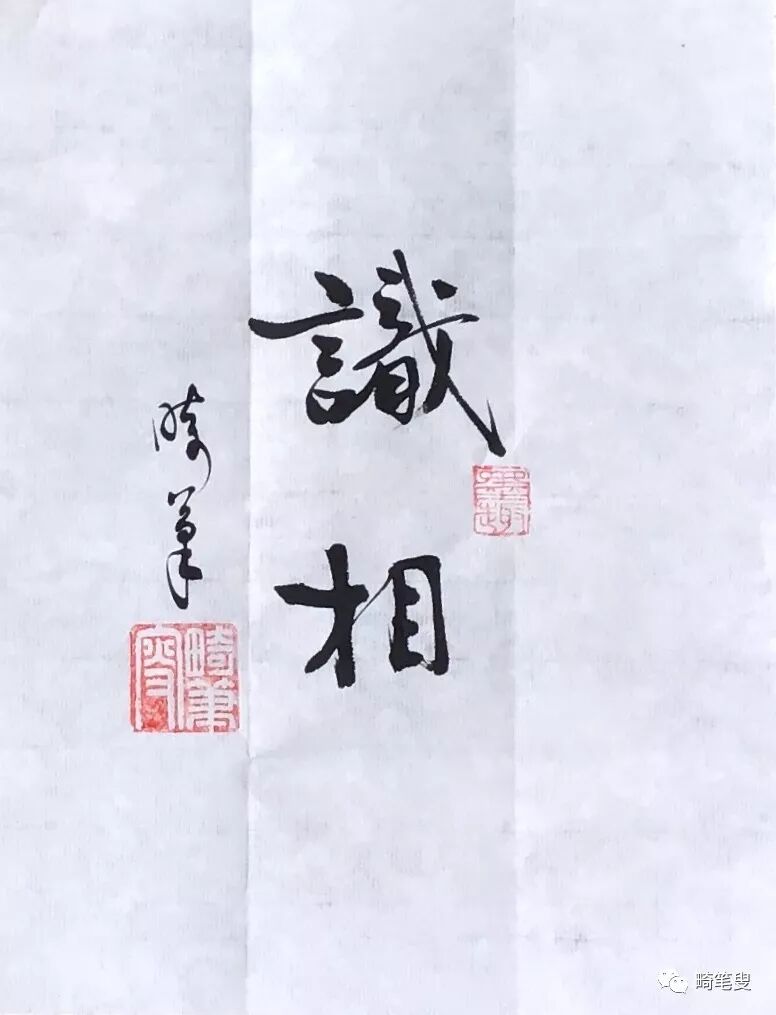 識相
畸筆
畸筆叟
畸笔叟